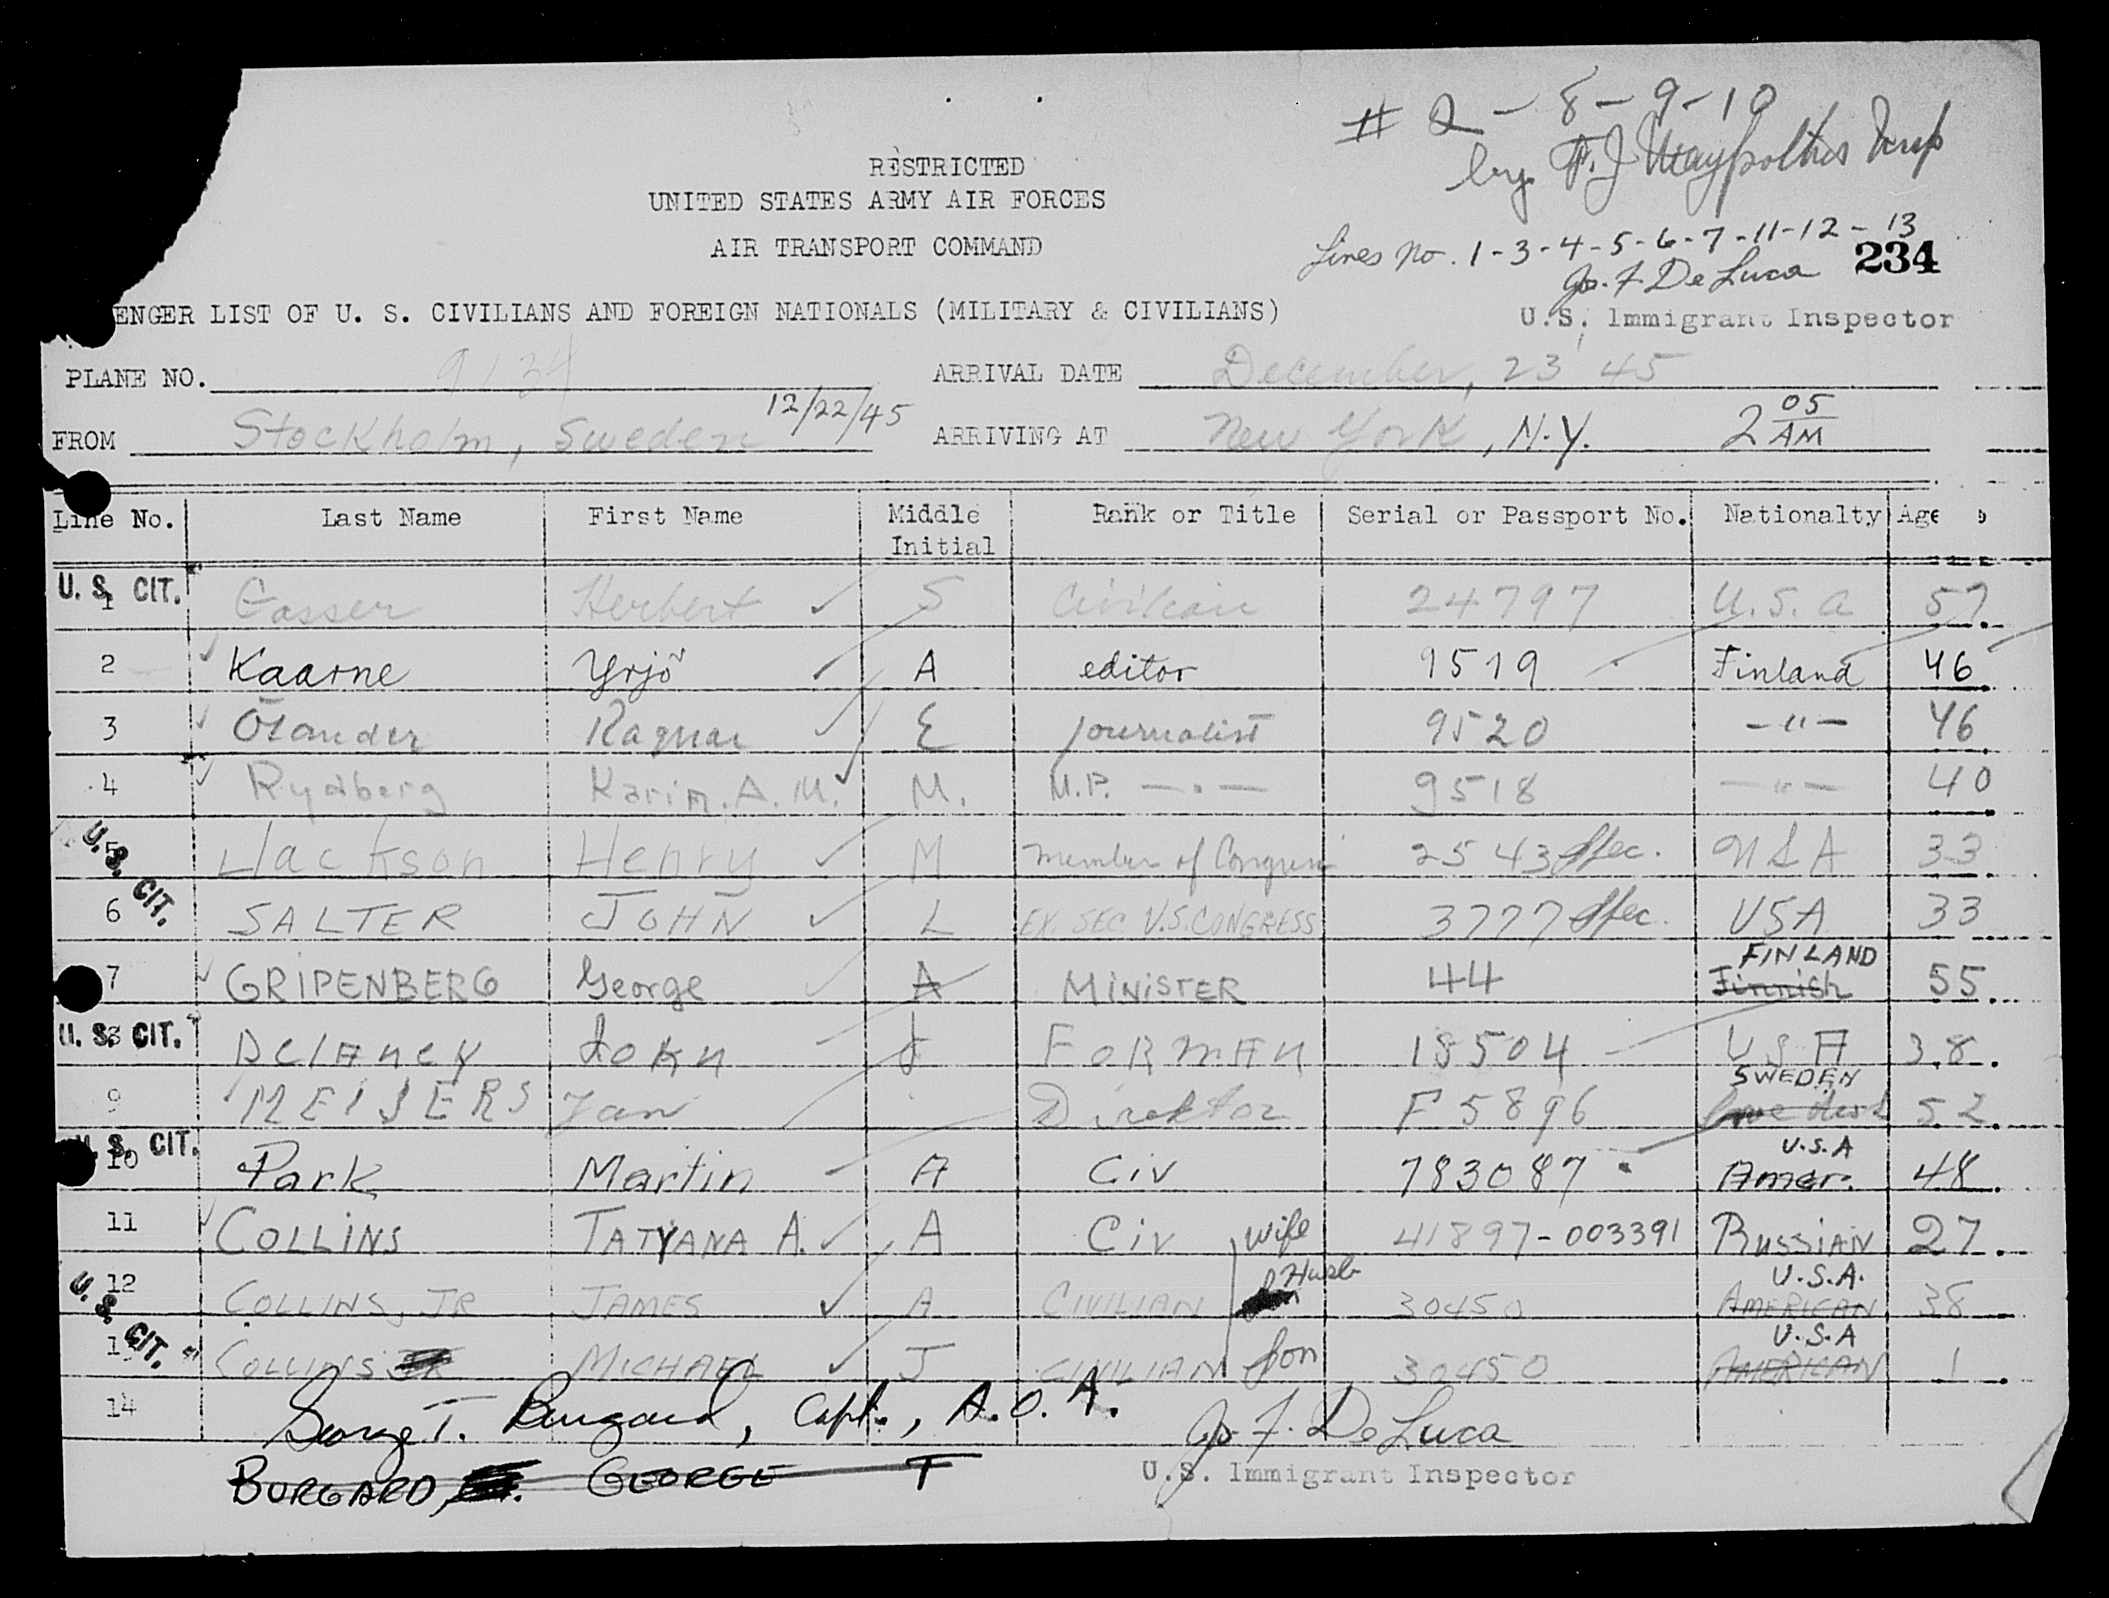 # 2 - 8 - 9 - 10
by F. J. Insp
RESTRICTED
UNITED STATES ARMY AIR FORCES
AIR TRANSPORT COMMAND
Lines No. 1-3-4-5-6-7-11-12-13
234
Jos. F. De Luca
U.S. Immigrant Inspector
ENGER LIST OF U. S. CIVILIANS AND FOREIGN NATIONALS (MILITARY & CIVILIANS)
PLANE NO. 9134 ARRIVAL DATE December, 23 45
FROM Stockholm, Sweden 12/22/45 ARRIVING AT New York, N.Y. 2 05 AM
Line No. Last Name First Name Middle Initial Rank or Title Serial or Passport No. Nationalty Age
U. S. CIT. 1 Gasser Herbert S Civilian 24797 U.S.A 57
2 Kaarne Yrjö A editor 9519 Finland 46
3 Ölander Ragnar E journalist 9520 -"- 46
4 Rydberg Karin. A. M. M. M.P. -.- 9518 -"- 40
U. S. CIT. 5 Jackson Henry M Member of Congress 2543 Spec. USA 33
6 SALTER JOHN L EX. SEC U.S. CONGRESS 3777 Spec. USA 33
7 GRIPENBERG George A MINISTER 44 FINLAND Finnish 55
U. S. CIT. 8 DClAnCY John J FORMAN 18504 USA 38
9 MEIJERS Jan Direktor F 5896 SWEDEN 52
U. S. CIT. 10 Park Martin A Civ 783087 U.S.A Amer. 48
11 COLLINS TATYANA A. A Civ wife 41897-003391 RUSSIAN 27
U. S. CIT. 12 COLLINS, JR JAMES A CIVILIAN Husb 30450 U.S.A. AMERICAN 38
13 COLLINS MICHAEL J CIVILIAN son 30450 U.S.A AMERICAN 1
14 George T. Burgard, Capt., A.O.A. Jos. F. De Luca
BURGARD, GEORGE T U.S. Immigrant Inspector